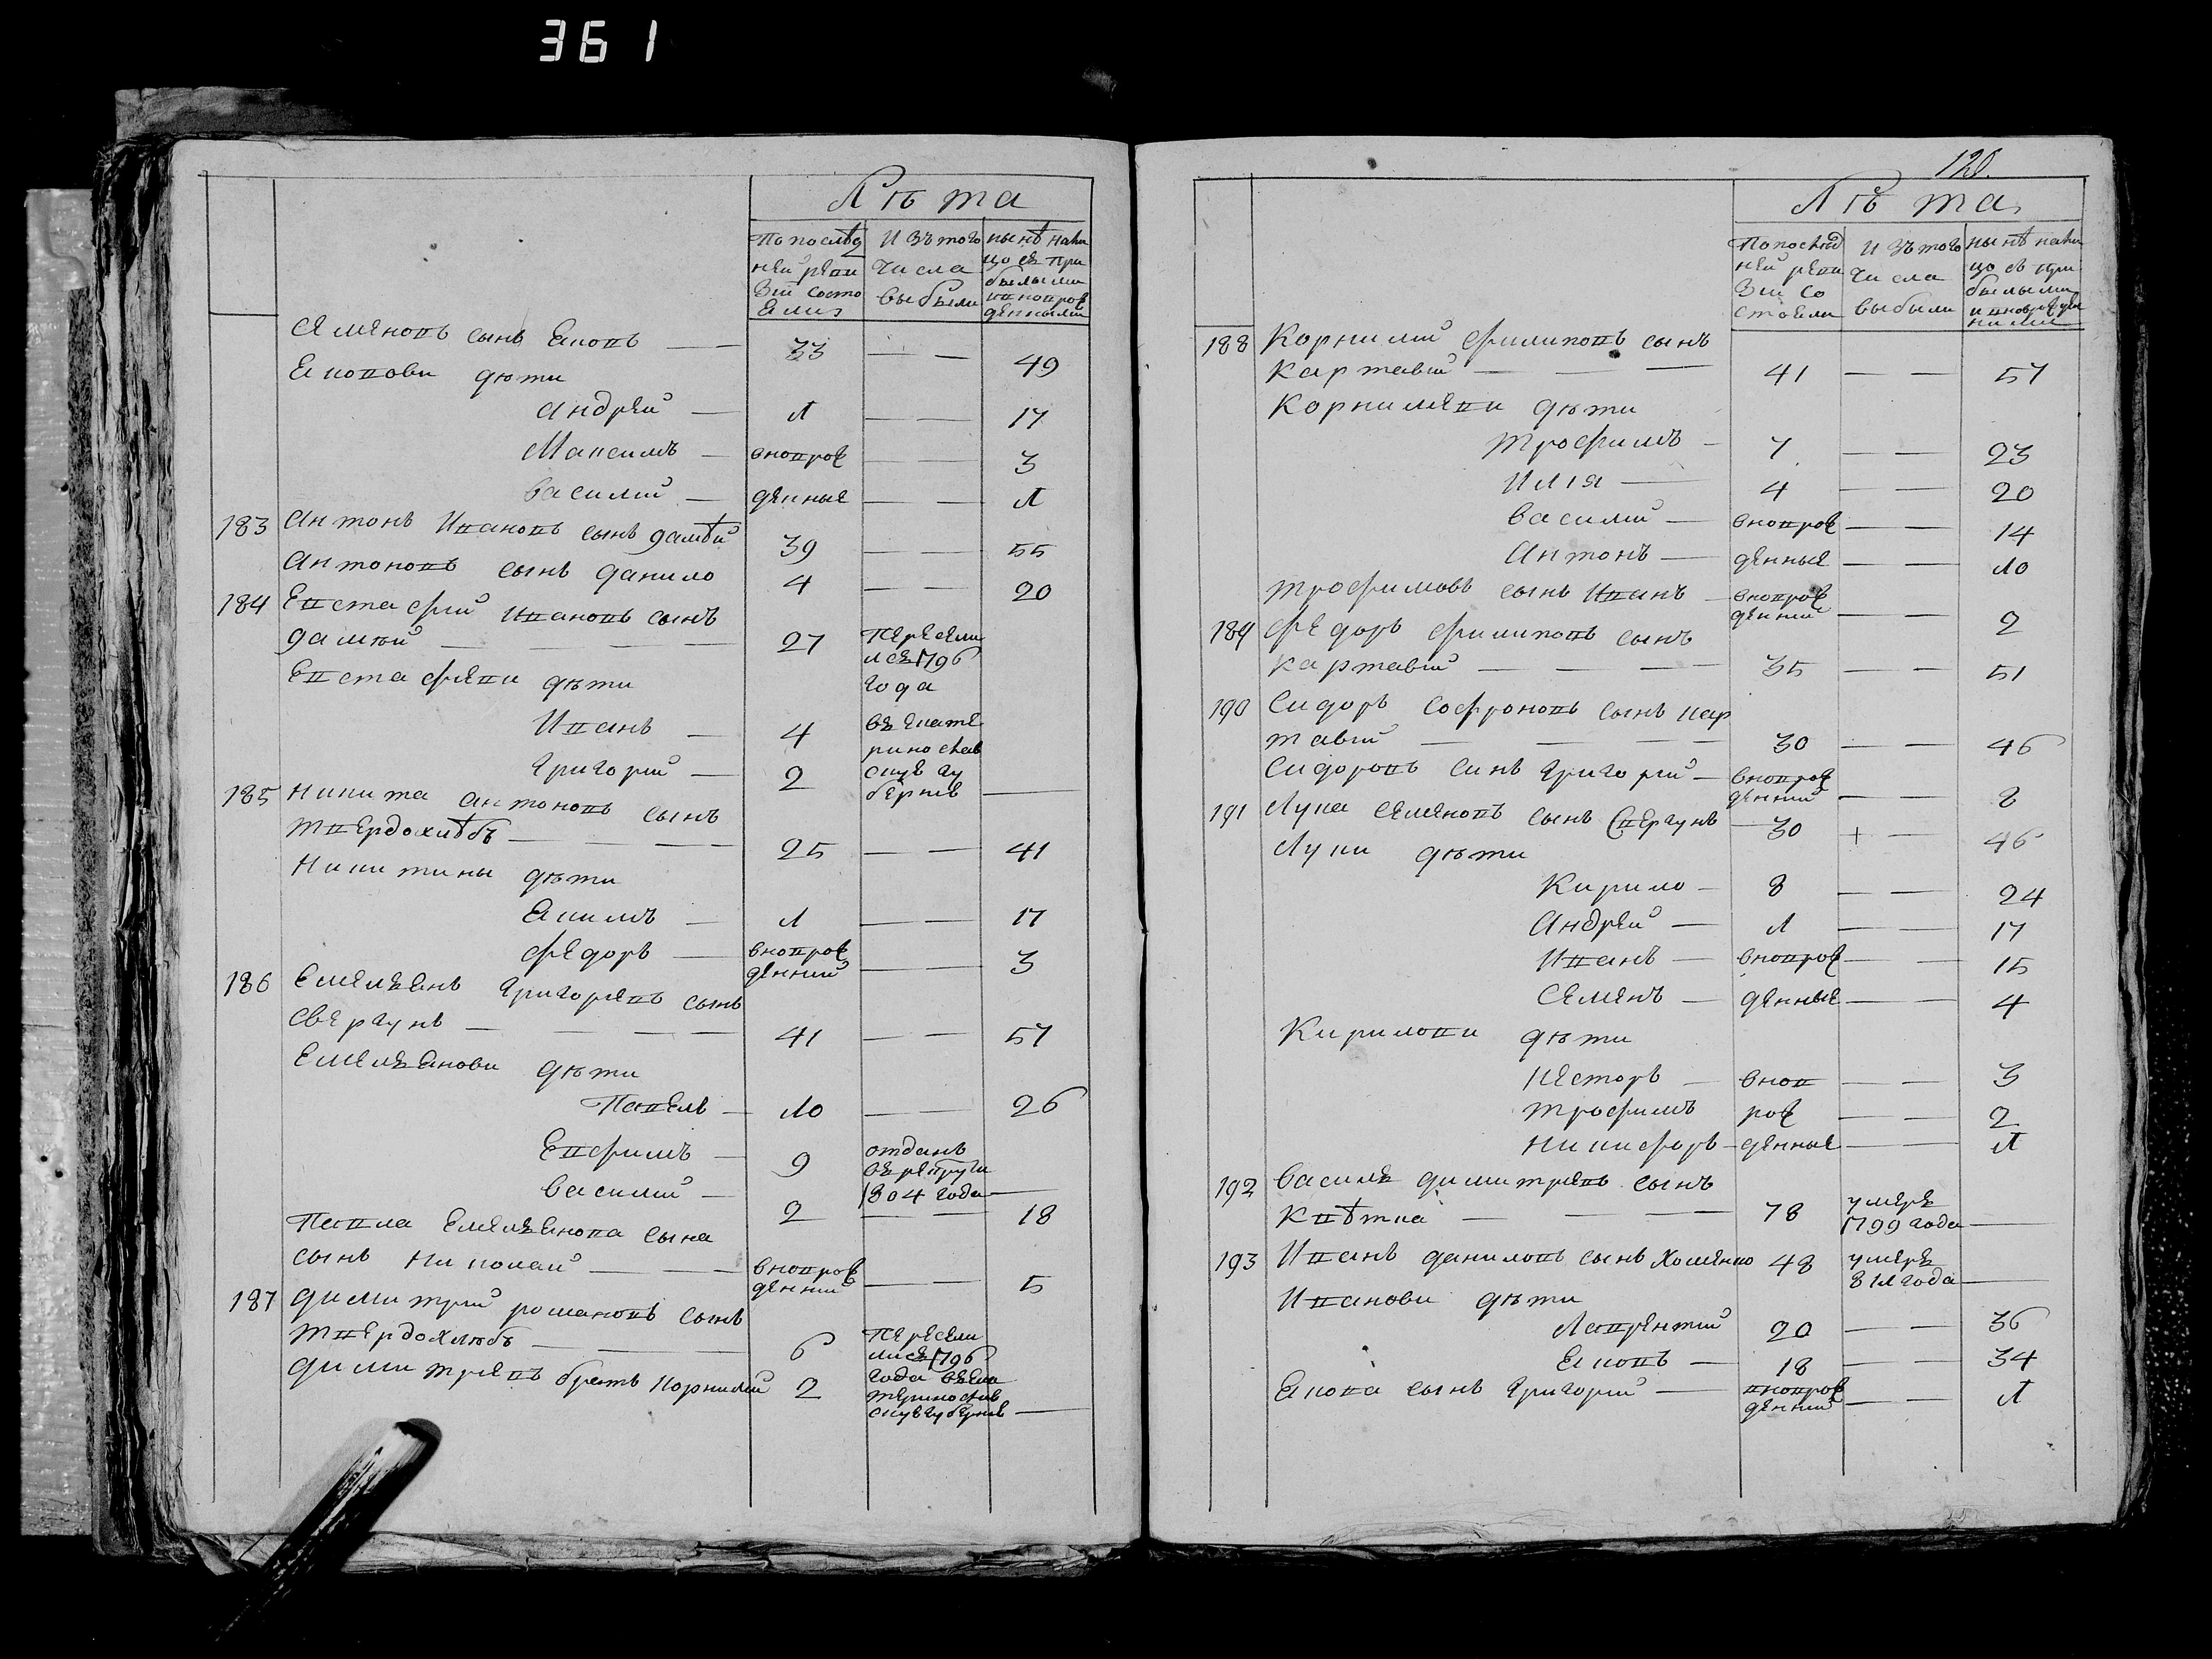 361
Лѣта
По послѣд
ней реви
зии состо
яли
Изъ того
числа
выбыли
ныне нали
цо съ при
былыми
и вноврож
денными
Яменовъ сынъ Яковъ — 33 — — 49
Яковови дѣти
Андрей — 1 — — 17
Максимъ — вновро — — 3
Василий — денные — — 1
183 Антонъ Ивановъ сынъ Далѣй 39 — — 55
Антоновъ сынъ Данило 4 — — 20
184 Евстафий Ивановъ сынъ
Далѣй — — — — 27 пересели
лсь 1796
года
Евстафеви дѣти
Иванъ — 4 въ Екате
ринослав
Григорий — 2 скую гу
бернию —
185 Никита Антоновъ сынъ
Твердохлѣбъ — — — — 25 — — 41
Никитины дѣти
Якимъ — 1 — — 17
Федоръ — вноврож
денний — — 3
186 Емельянъ Григоревъ сынъ
Свергунъ — — — — 41 — — 57
Емельянови дѣти
Павелъ — 10 — — 26
Евфимъ — 9 отданъ
въ рекруты
1804 года —
Василий — 2 — — 18
Павла Емельянова сына
сынъ Николай — — вноврож
денний — — 5
187 Димитрий Романовъ сынъ
Твердохлѣбъ — — — 6 пересели
лись 1796
года въ Ека
теринослав
скую губерню —
Димитревъ братъ Корнилий 2
128
Лѣта
По послѣд
ней реви
зии со
стояли
Изъ того
числа
выбыли
ныне нали
цо съ при
былыми
и вноврожден
ними
188 Корнилий Филиповъ сынъ
Картавий — — — 41 — — 57
Корнилеви дѣти
Трофимъ — 7 — — 23
Илия — 4 — — 20
Василий — вновро — — 14
Антонъ — денные — — 10
Трофимовъ сынъ Иванъ — вноврож
денний — — 2
189 Федоръ Филиповъ сынъ
Картавий — — — 35 — — 51
190 Сидоръ Софроновъ сынъ Кар
тавий — — — — 30 — — 46
Сидоровъ синъ Григорий — вноврож
денний — — 2
191 Лука Семеновъ сынъ Свергунъ — 30 + — 46
Луки дѣти
Кирило — 8 — — 24
Андрей — 1 — — 17
Иванъ — вновро — — 15
Семенъ — денные — — 4
Кирилови дѣти
Несторъ — внов — — 3
Трофимъ рож — — 2
Никифоръ — денные — — 1
192 Василь Димитревъ сынъ
Квѣтка — — — 78 умерь
1799 года —
193 Иванъ Даниловъ сынъ Хоменко 48 умерь
811 года —
Иванови дѣти
Лаврентий 20 — — 36
Яковъ — 18 — — 34
Якова сынъ Григорий — вноврож
денний — — 1